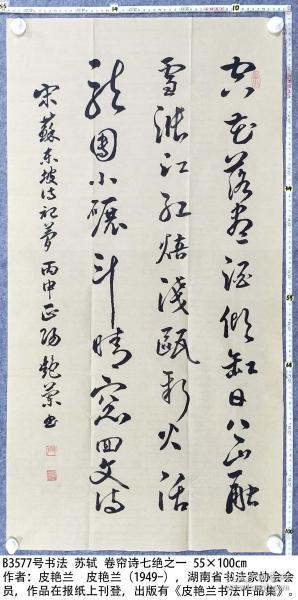 空花落盡酒傾缸日上山融
雪漲江紅焙淺甌新火活
龍團小碾斗晴窗回文诗
宋蘇東坡诗記夢 丙申正陽 艷蘭书
B3577号书法 苏轼 卷帘诗七绝之一 55×100cm
作者：皮艳兰 皮艳兰（1949-），湖南省书法家协会会
员，作品在报纸上刊登，出版有《皮艳兰书法作品集》。